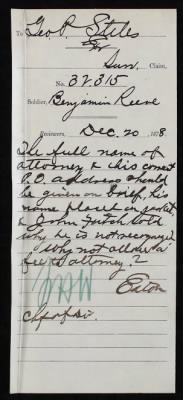 To Geo. P. Stiles
Ex
Surv. Claim,
No. 32315
Soldier, Benjamin Reeve
Reviewers, Dec. 20 1878
The full name of
attorney & his correct
P.O. address should
be given on Brief, his
name placed on jacket,
& John told
why he is not recognized
why not allow a
fee to attorney?
Eaton